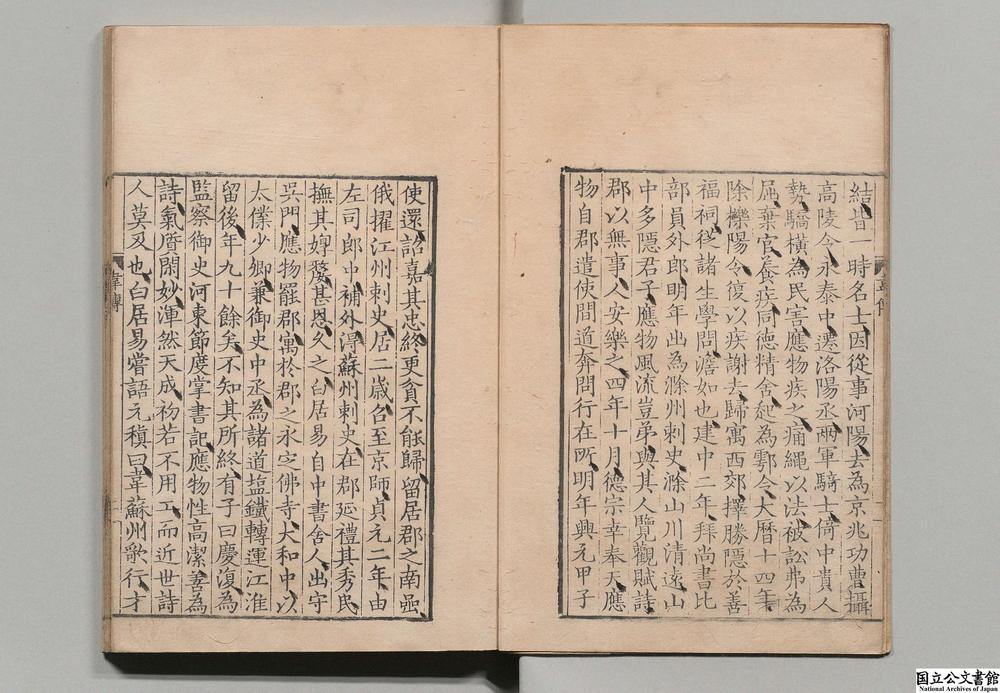 結皆一時名士因從事河陽去為京兆功曹攝
高陵令永泰中遷洛陽丞兩軍騎士倚中貴人
勢驕橫為民害應物疾之痛繩以法被訟弗為
屈棄官養疾同德精舍起為鄠令大曆十四年
除櫟陽令復以疾謝去歸寓西郊擇勝隱於善
福祠從諸生學問澹如也建中二年拜尚書比
部員外郎明年出為滁州刺史滁山川清遠山
中多隱君子應物風流豈弟與其人覽觀賦詩
郡以無事人安樂之四年十月德宗幸奉天應
物自郡遣使間道奔問行在所明年興元甲子
韋傳
使還詔嘉其忠終更貧不能歸留居郡之南巖
俄擢江州刺史居二歲召至京師貞元二年由
左司郎中補外得蘇州刺史在郡延禮其秀民
撫其惸嫠甚恩久之白居易自中書舍人出守
吳門應物罷郡寓於郡之永定佛寺大和中以
太僕少卿兼御史中丞為諸道塩鐵轉運江淮
留後年九十餘矣不知其所終有子曰慶復為
監察御史河東節度掌書記應物性高潔善為
詩氣質閑妙渾然天成初若不用工而近世詩
人莫及也白居易嘗語元稹曰韋蘇州歌行才
韋傳
国立公文書館
National Archives of Japan